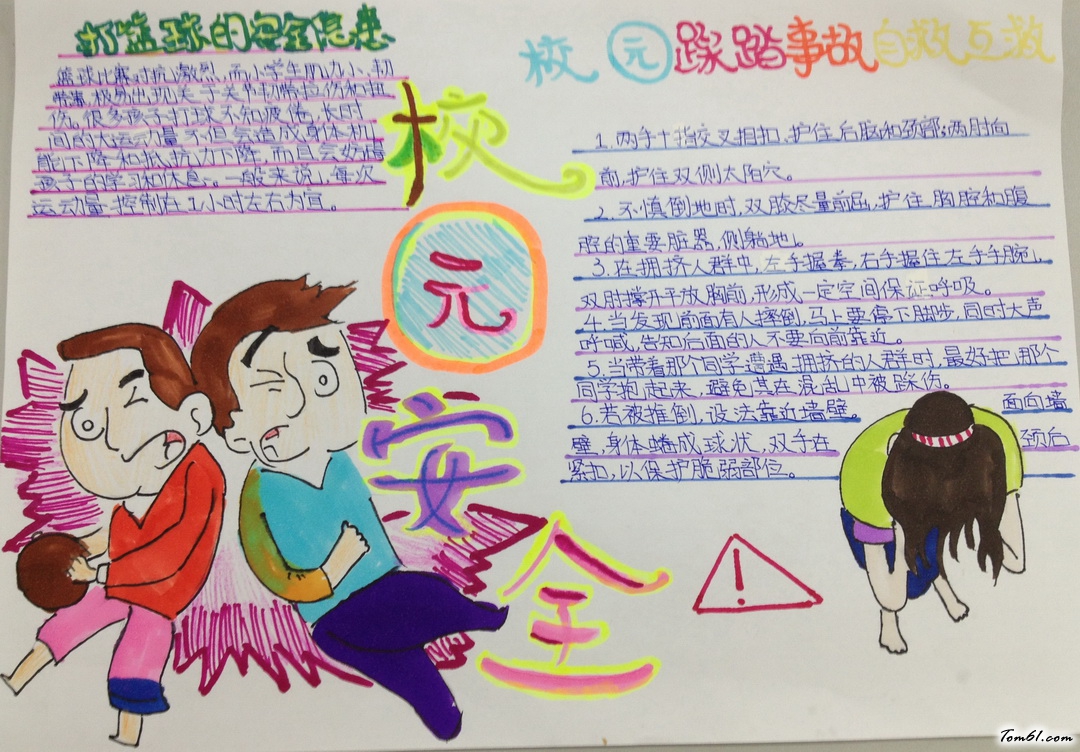 打篮球的安全信患
篮球比赛对抗激烈,而小学生肌力小、韧
带薄,极易出现关于关节韧带拉伤和扭
伤。很多孩子打球不知疲倦,长时
间的大运动量不但会造成身体机
能下降和抵抗力下降,而且会妨碍
孩子的学习和休息。一般来说,每次
运动量控制在1小时左右为宜。
校元安全
校元踩踏事故自救互救
1.两手十指交叉相扣,护住后脑和颈部;两肘向
前,护住双侧太阳穴。
2.不慎倒地时,双膝尽量前屈,护住胸腔和腹
腔的重要脏器,侧躺地。
3.在拥挤人群中,左手握拳,右手握住左手手腕,
双肘撑开平放胸前,形成一定空间保证呼吸。
4.当发现前面有人摔倒,马上要停下脚步,同时大声
呼喊,告知后面的人不要向前靠近。
5.当带着那个同学遭遇拥挤的人群时,最好把那个
同学抱起来,避免其在混乱中被踩伤。
6.若被推倒,设法靠近墙壁。 面向墙
壁,身体蜷成球状,双手在 颈后
紧扣,以保护脆弱部位。
Tom61.com